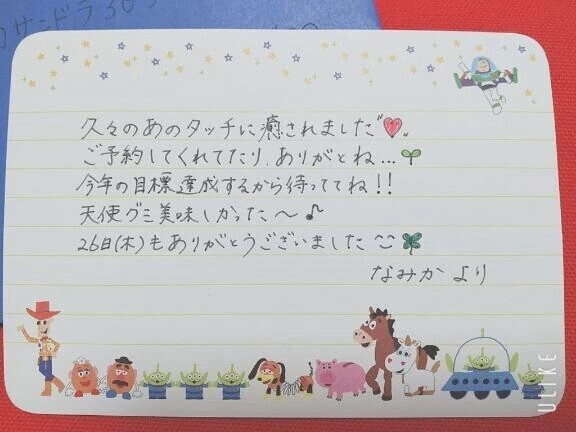 カサンドラ30
久々のあのタッチに癒されました"♥"
ご予約してくれてたり、ありがとね…🌱
今年の目標達成するから待っててね!!
天使グミ美味しかった〜♪
26日(木)もありがとうございました ニコ🍀
なみかより
ULIKE